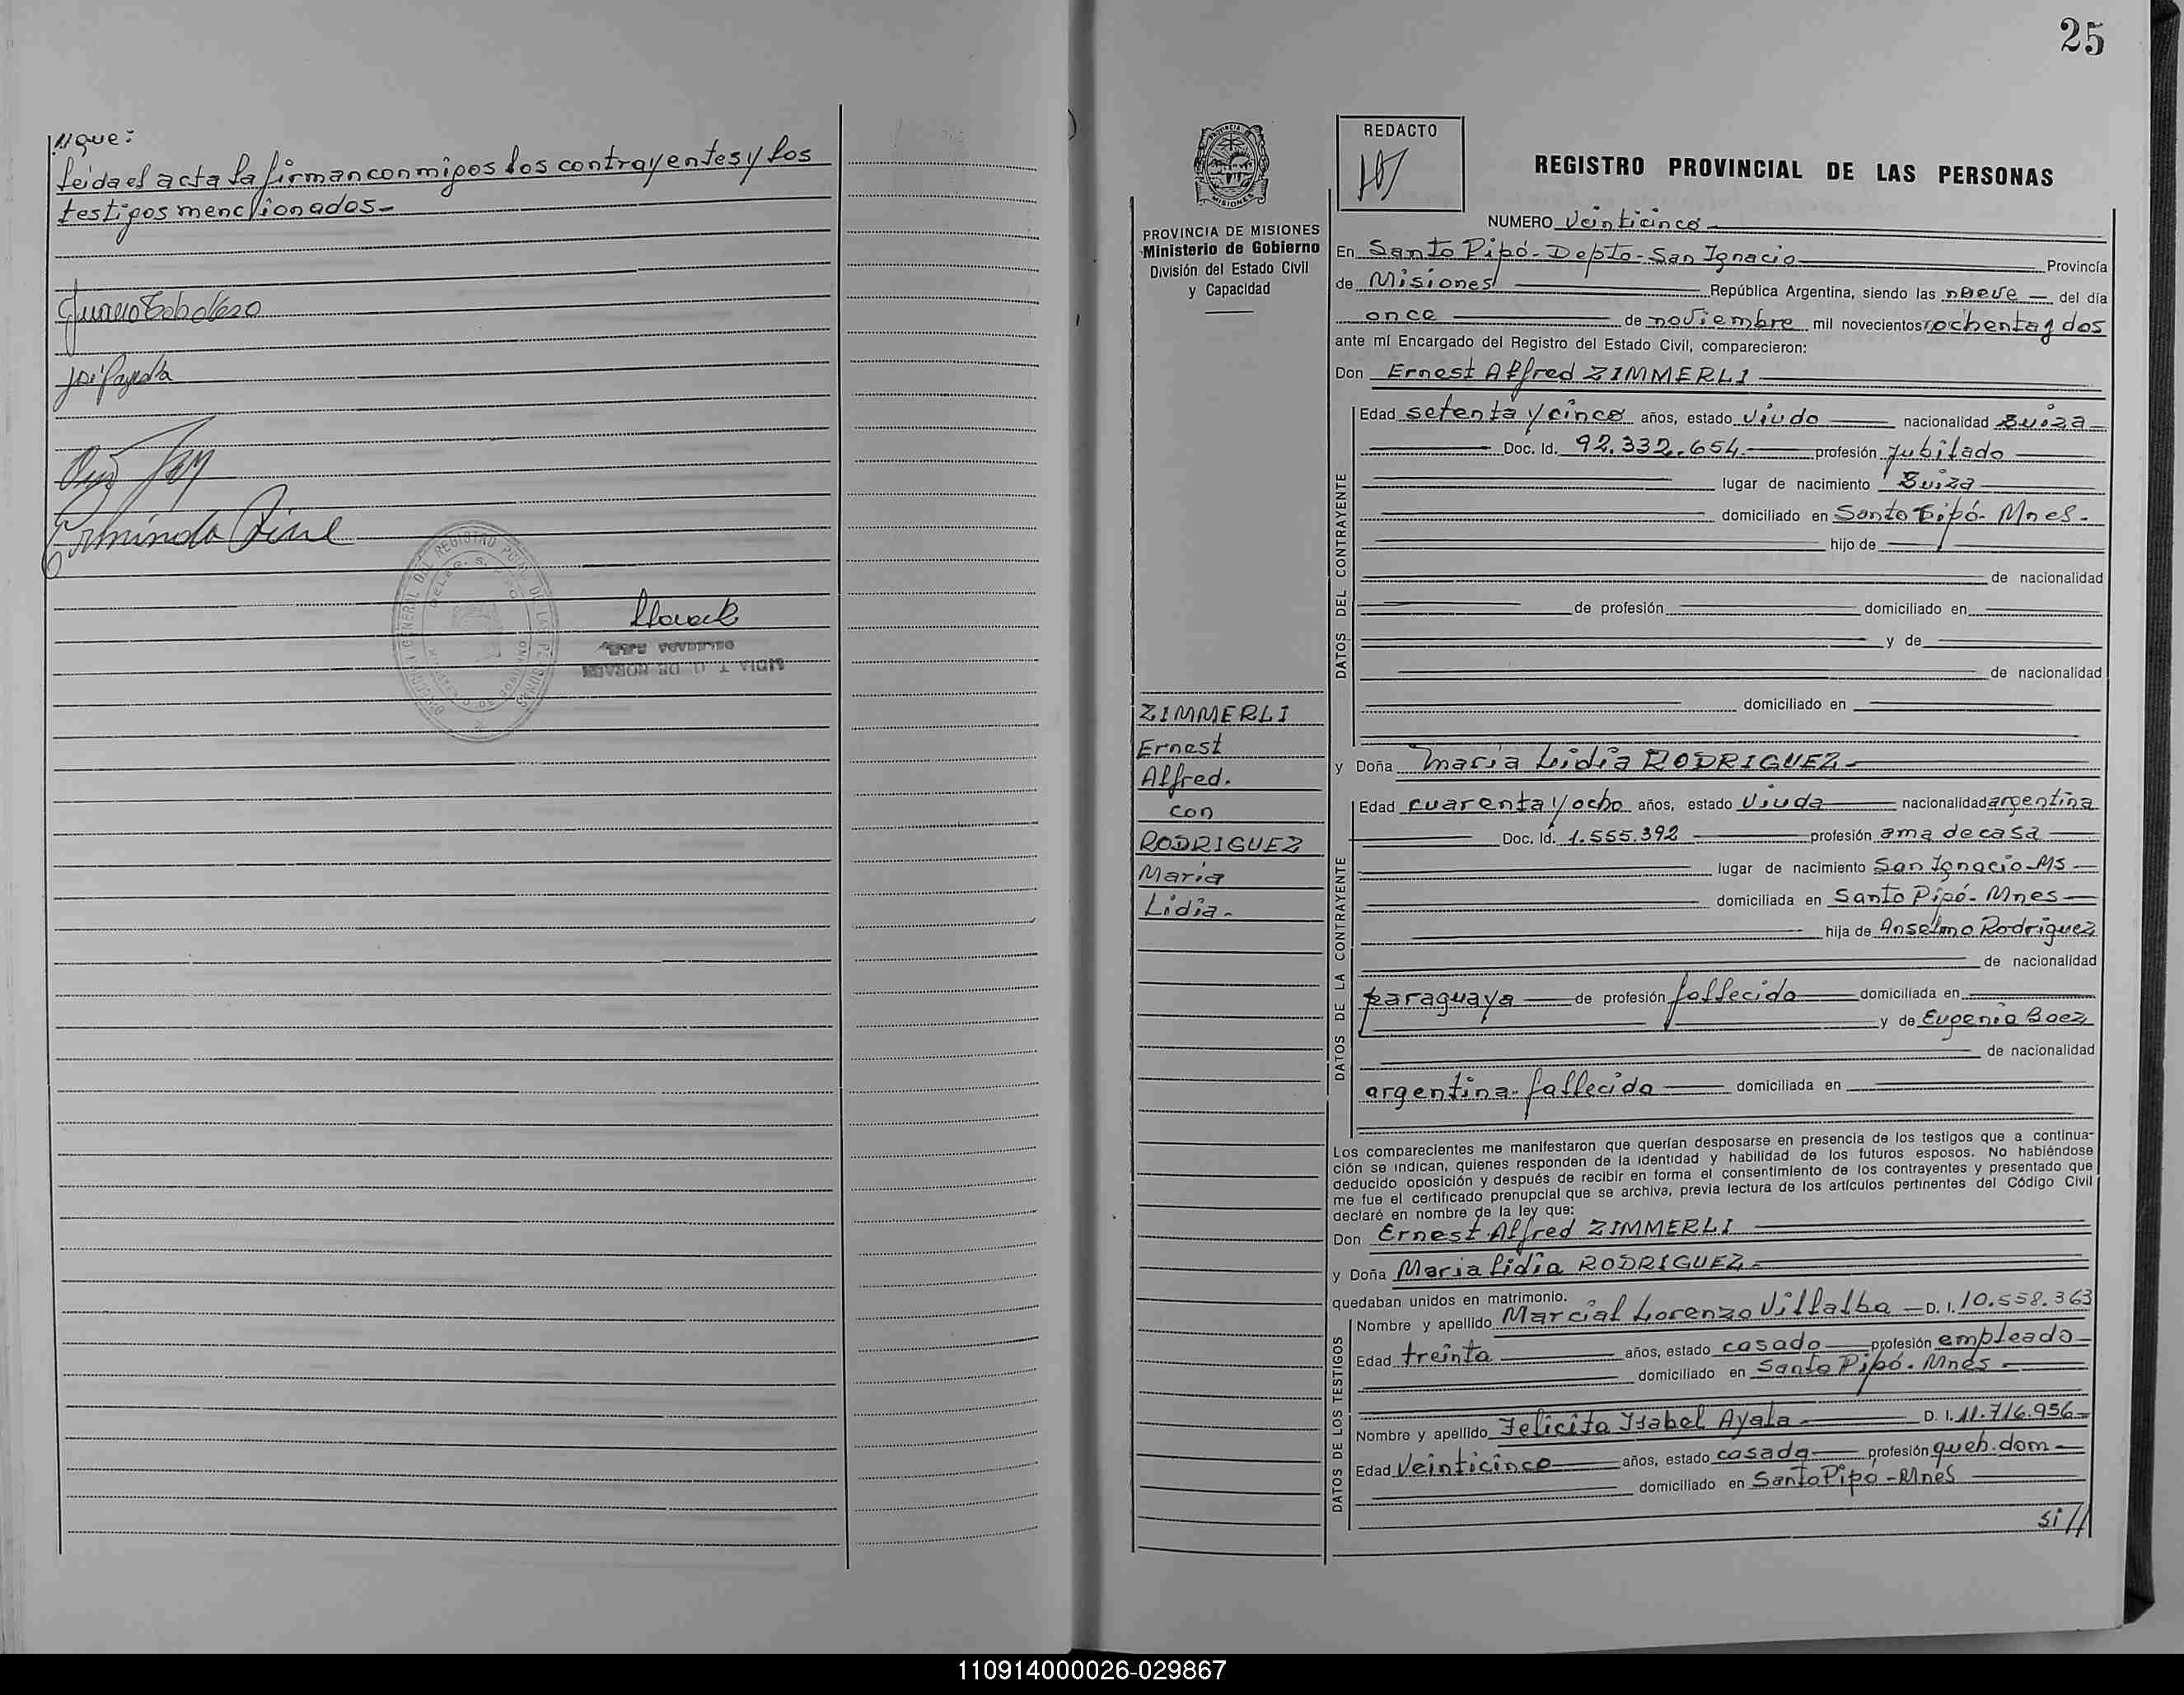 //que:
leida el acta la firman conmigos los contrayentes y los
testigos mencionados-
25
REDACTO
REGISTRO PROVINCIAL DE LAS PERSONAS
PROVINCIA DE MISIONES
Ministerio de Gobierno
División del Estado Civil
y Capacidad
NUMERO Veinticinco
En Santo Pipó- Depto- San Ignacio Provincia
de Misiones República Argentina, siendo las nueve del día
once de noviembre mil novecientos ochenta y dos
ante mí Encargado del Registro del Estado Civil, comparecieron:
Don Ernest Alfred ZIMMERLI
DATOS DEL CONTRAYENTE
Edad setenta y cinco años, estado viudo nacionalidad Suiza
Doc. Id. 92.332.654 profesión jubilado
lugar de nacimiento Suiza
domiciliado en Santo Pipó- Mnes-
hijo de
de nacionalidad
de profesión domiciliado en
y de
de nacionalidad
domiciliado en
ZIMMERLI
Ernest
Alfred.
con
RODRIGUEZ
Maria
Lidia-
y Doña Maria Lidia RODRIGUEZ-
DATOS DE LA CONTRAYENTE
Edad cuarenta y ocho años, estado viuda nacionalidad argentina
Doc. Id. 1.555.392 profesión ama de casa
lugar de nacimiento San Ignacio-MS
domiciliada en Santo Pipó- Mnes
hija de Anselmo Rodriguez
de nacionalidad
paraguaya de profesión fallecido domiciliada en
y de Eugenia Baez
de nacionalidad
argentina-fallecida domiciliada en
Los comparecientes me manifestaron que querían desposarse en presencia de los testigos que a continua-
ción se indican, quienes responden de la identidad y habilidad de los futuros esposos. No habiéndose
deducido oposición y después de recibir en forma el consentimiento de los contrayentes y presentado que
me fue el certificado prenupcial que se archiva, previa lectura de los artículos pertinentes del Código Civil
declaré en nombre de la ley que:
Don Ernest Alfred ZIMMERLI
y Doña Maria Lidia RODRIGUEZ-
quedaban unidos en matrimonio.
DATOS DE LOS TESTIGOS
Nombre y apellido Marcial Lorenzo Villalba D. I. 10.558.363
Edad treinta años, estado casado profesión empleado
domiciliado en Santo Pipó- Mnes
Nombre y apellido Felicita Isabel Ayala- D. I. 11.716.956
Edad veinticinco años, estado casada profesión queh.dom-
domiciliado en Santo Pipó-Mnes
si//
110914000026-029867